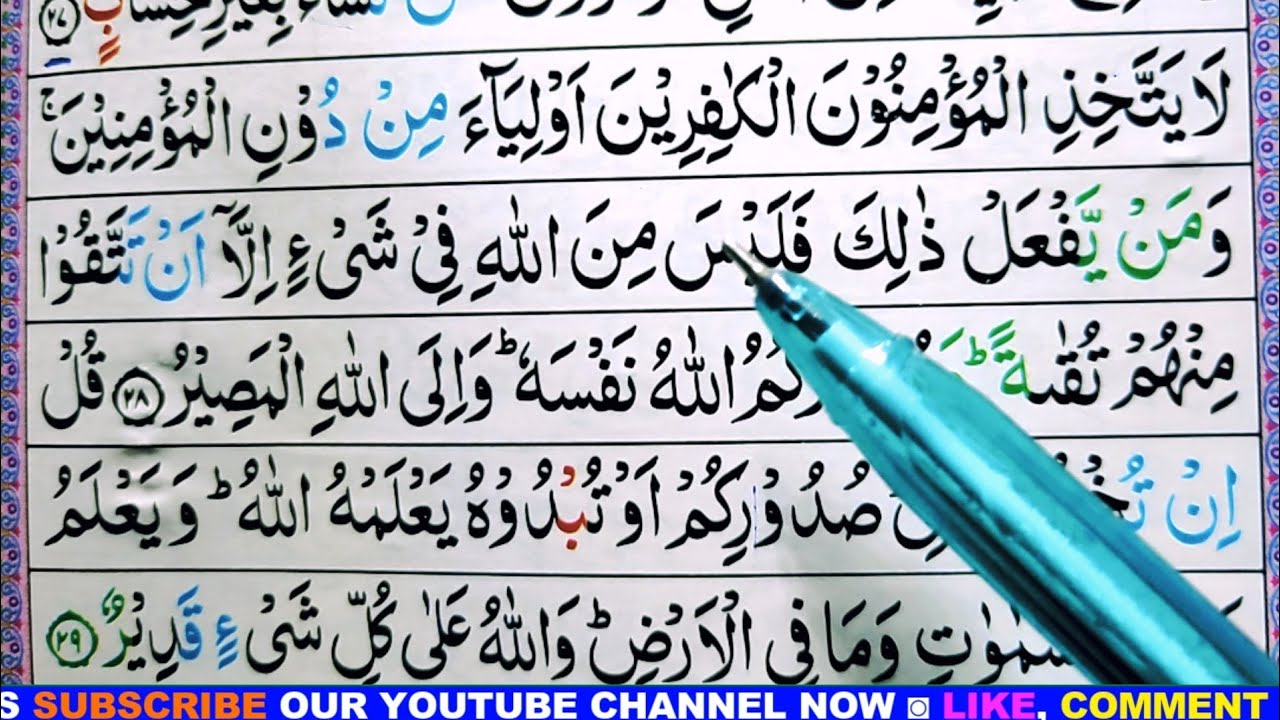 بِغَيْرِ حِسَابٍ ۝۲۷
لَا يَتَّخِذِ الْمُؤْمِنُوْنَ الْكٰفِرِيْنَ اَوْلِيَآءَ مِنْ دُوْنِ الْمُؤْمِنِيْنَ ۚ
وَمَنْ يَّفْعَلْ ذٰلِكَ فَلَيْسَ مِنَ اللّٰهِ فِيْ شَيْءٍ اِلَّاۤ اَنْ تَتَّقُوْا
مِنْهُمْ تُقٰىةً ؕ اللّٰهُ نَفْسَهٗ ؕ وَاِلَى اللّٰهِ الْمَصِيْرُ ۝۲۸ قُلْ
اِنْ صُدُوْرِكُمْ اَوْ تُبْدُوْهُ يَعْلَمْهُ اللّٰهُ ؕ وَيَعْلَمُ
وَمَا فِي الْاَرْضِ ؕ وَاللّٰهُ عَلٰى كُلِّ شَيْءٍ قَدِيْرٌ ۝۲۹
S SUBSCRIBE OUR YOUTUBE CHANNEL NOW ◙ LIKE, COMMENT